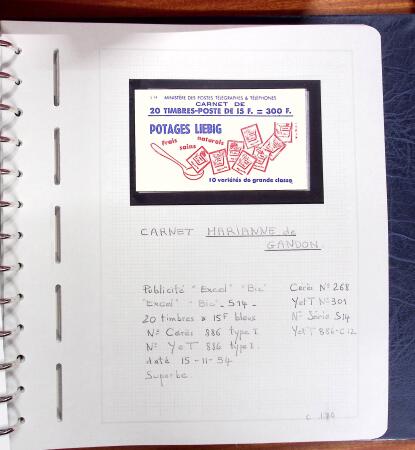 S 14 MINISTÈRE DES POSTES TÉLÉGRAPHES & TÉLÉPHONES
CARNET DE
20 TIMBRES-POSTE DE 15 F. = 300 F.
POTAGES LIEBIG
frais
sains
naturels
10 variétés de grande classe
CARNET MARIANNE de
GANDON.
Publicité "Excel" "Bic"
"Excel" "Bic" - S14 -
20 timbres à 15F bleus
N° Cérès 886 type I.
N° YeT 886 type I.
daté 15-11-54
Superbe
Cérès N° 268
YetT N° 301
N° Série S14
YetT 886-C12
c 180